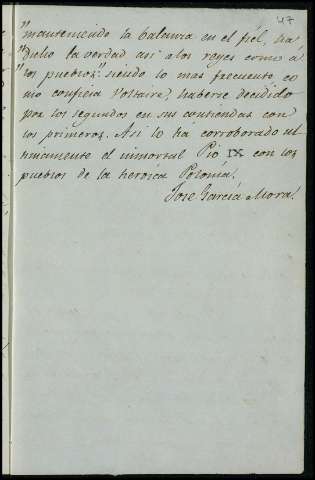 47
"manteniendo la balanza en el fiel, ha
"dicho la verdad asi a los reyes como á
"los pueblos;" siendo lo mas frecuente co
mo confiesa Voltaire, haberse decidido
por los segundos en sus contiendas con
los primeros. Asi lo ha corroborado ul
timamente el inmortal Pio IX con los
pueblos de la heroica Polonia.
José García Mora.